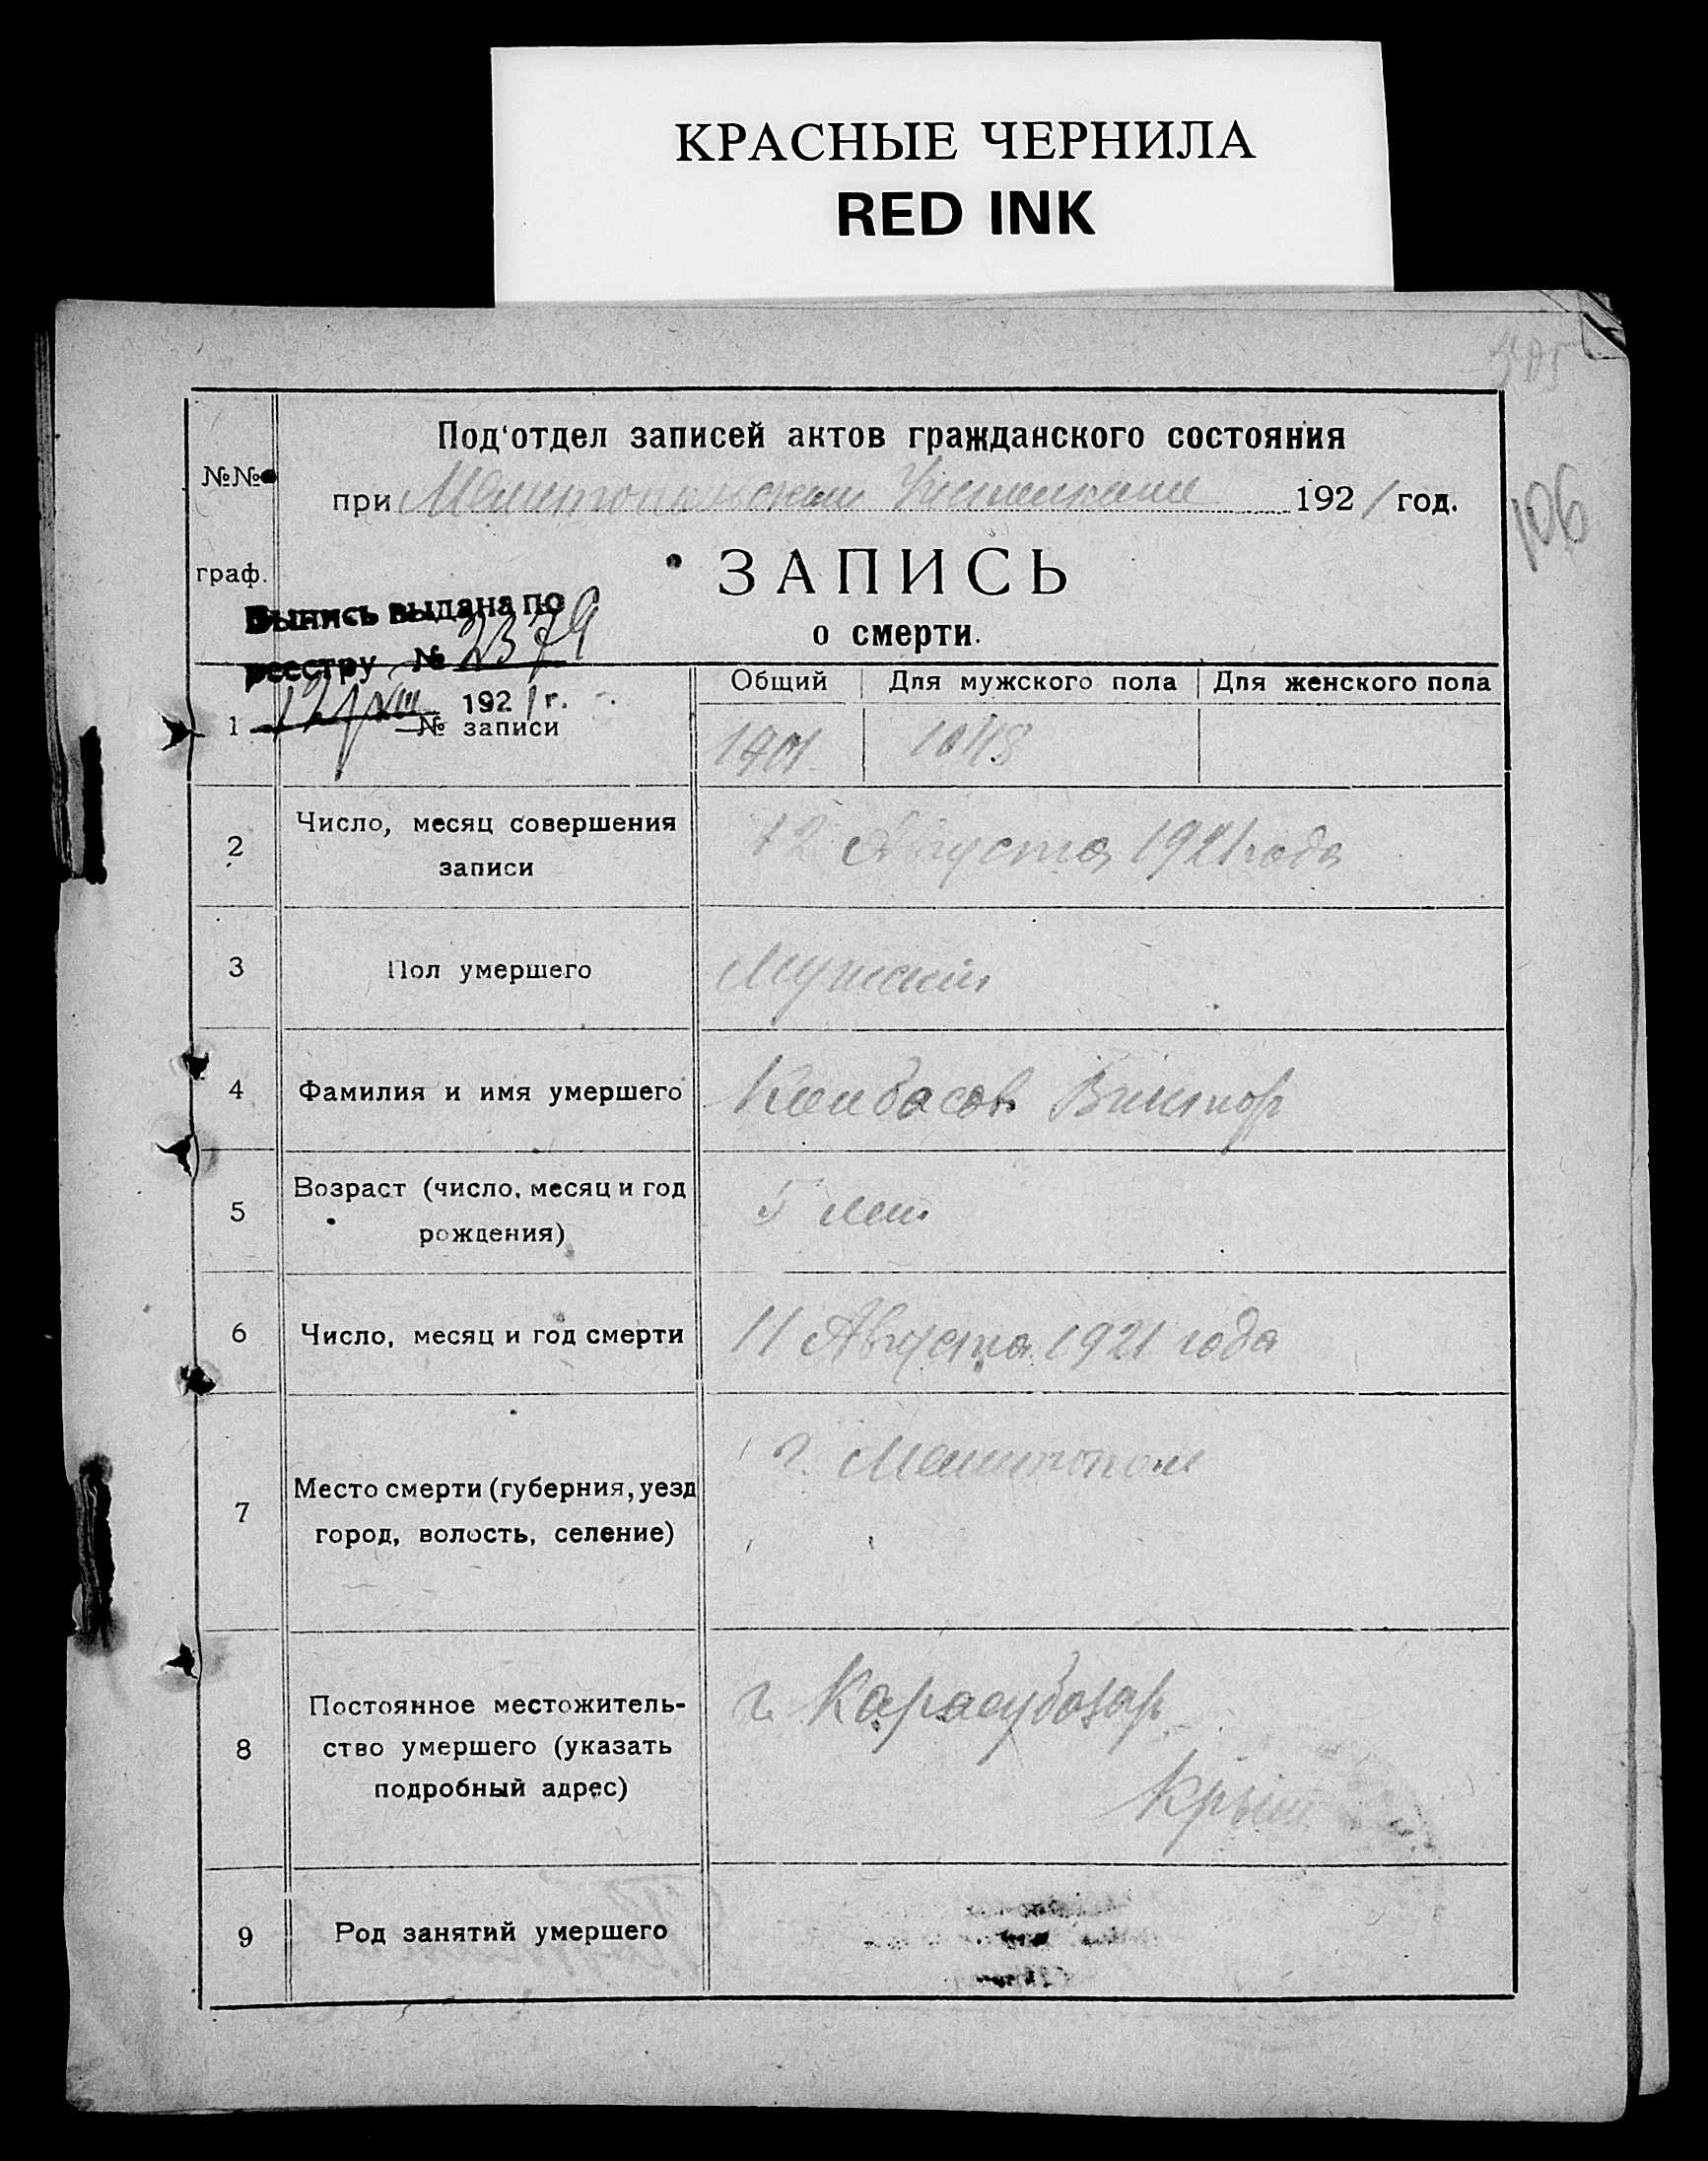 КРАСНЫЕ ЧЕРНИЛА
RED INK
Под'отдел записей актов гражданского состояния
№№
при Мелитопольском 1921 год.
106
граф.
ЗАПИСЬ
о смерти.
Выпись выдана по
реестру № 2379
12/VIII 1921 г.
Общий Для мужского пола Для женского пола
1 № записи
2 Число, месяц совершения
записи
12 Августа 1921 года
3 Пол умершего Мужской
4 Фамилия и имя умершего Колбасов Виктор
5 Возраст (число, месяц и год
рождения)
5 лет
6 Число, месяц и год смерти 11 Августа 1921 года
7 Место смерти (губерния, уезд
город, волость, селение)
г. Мелитополь
8 Постоянное местожитель-
ство умершего (указать
подробный адрес)
г. Карасубазар
Крым
9 Род занятий умершего